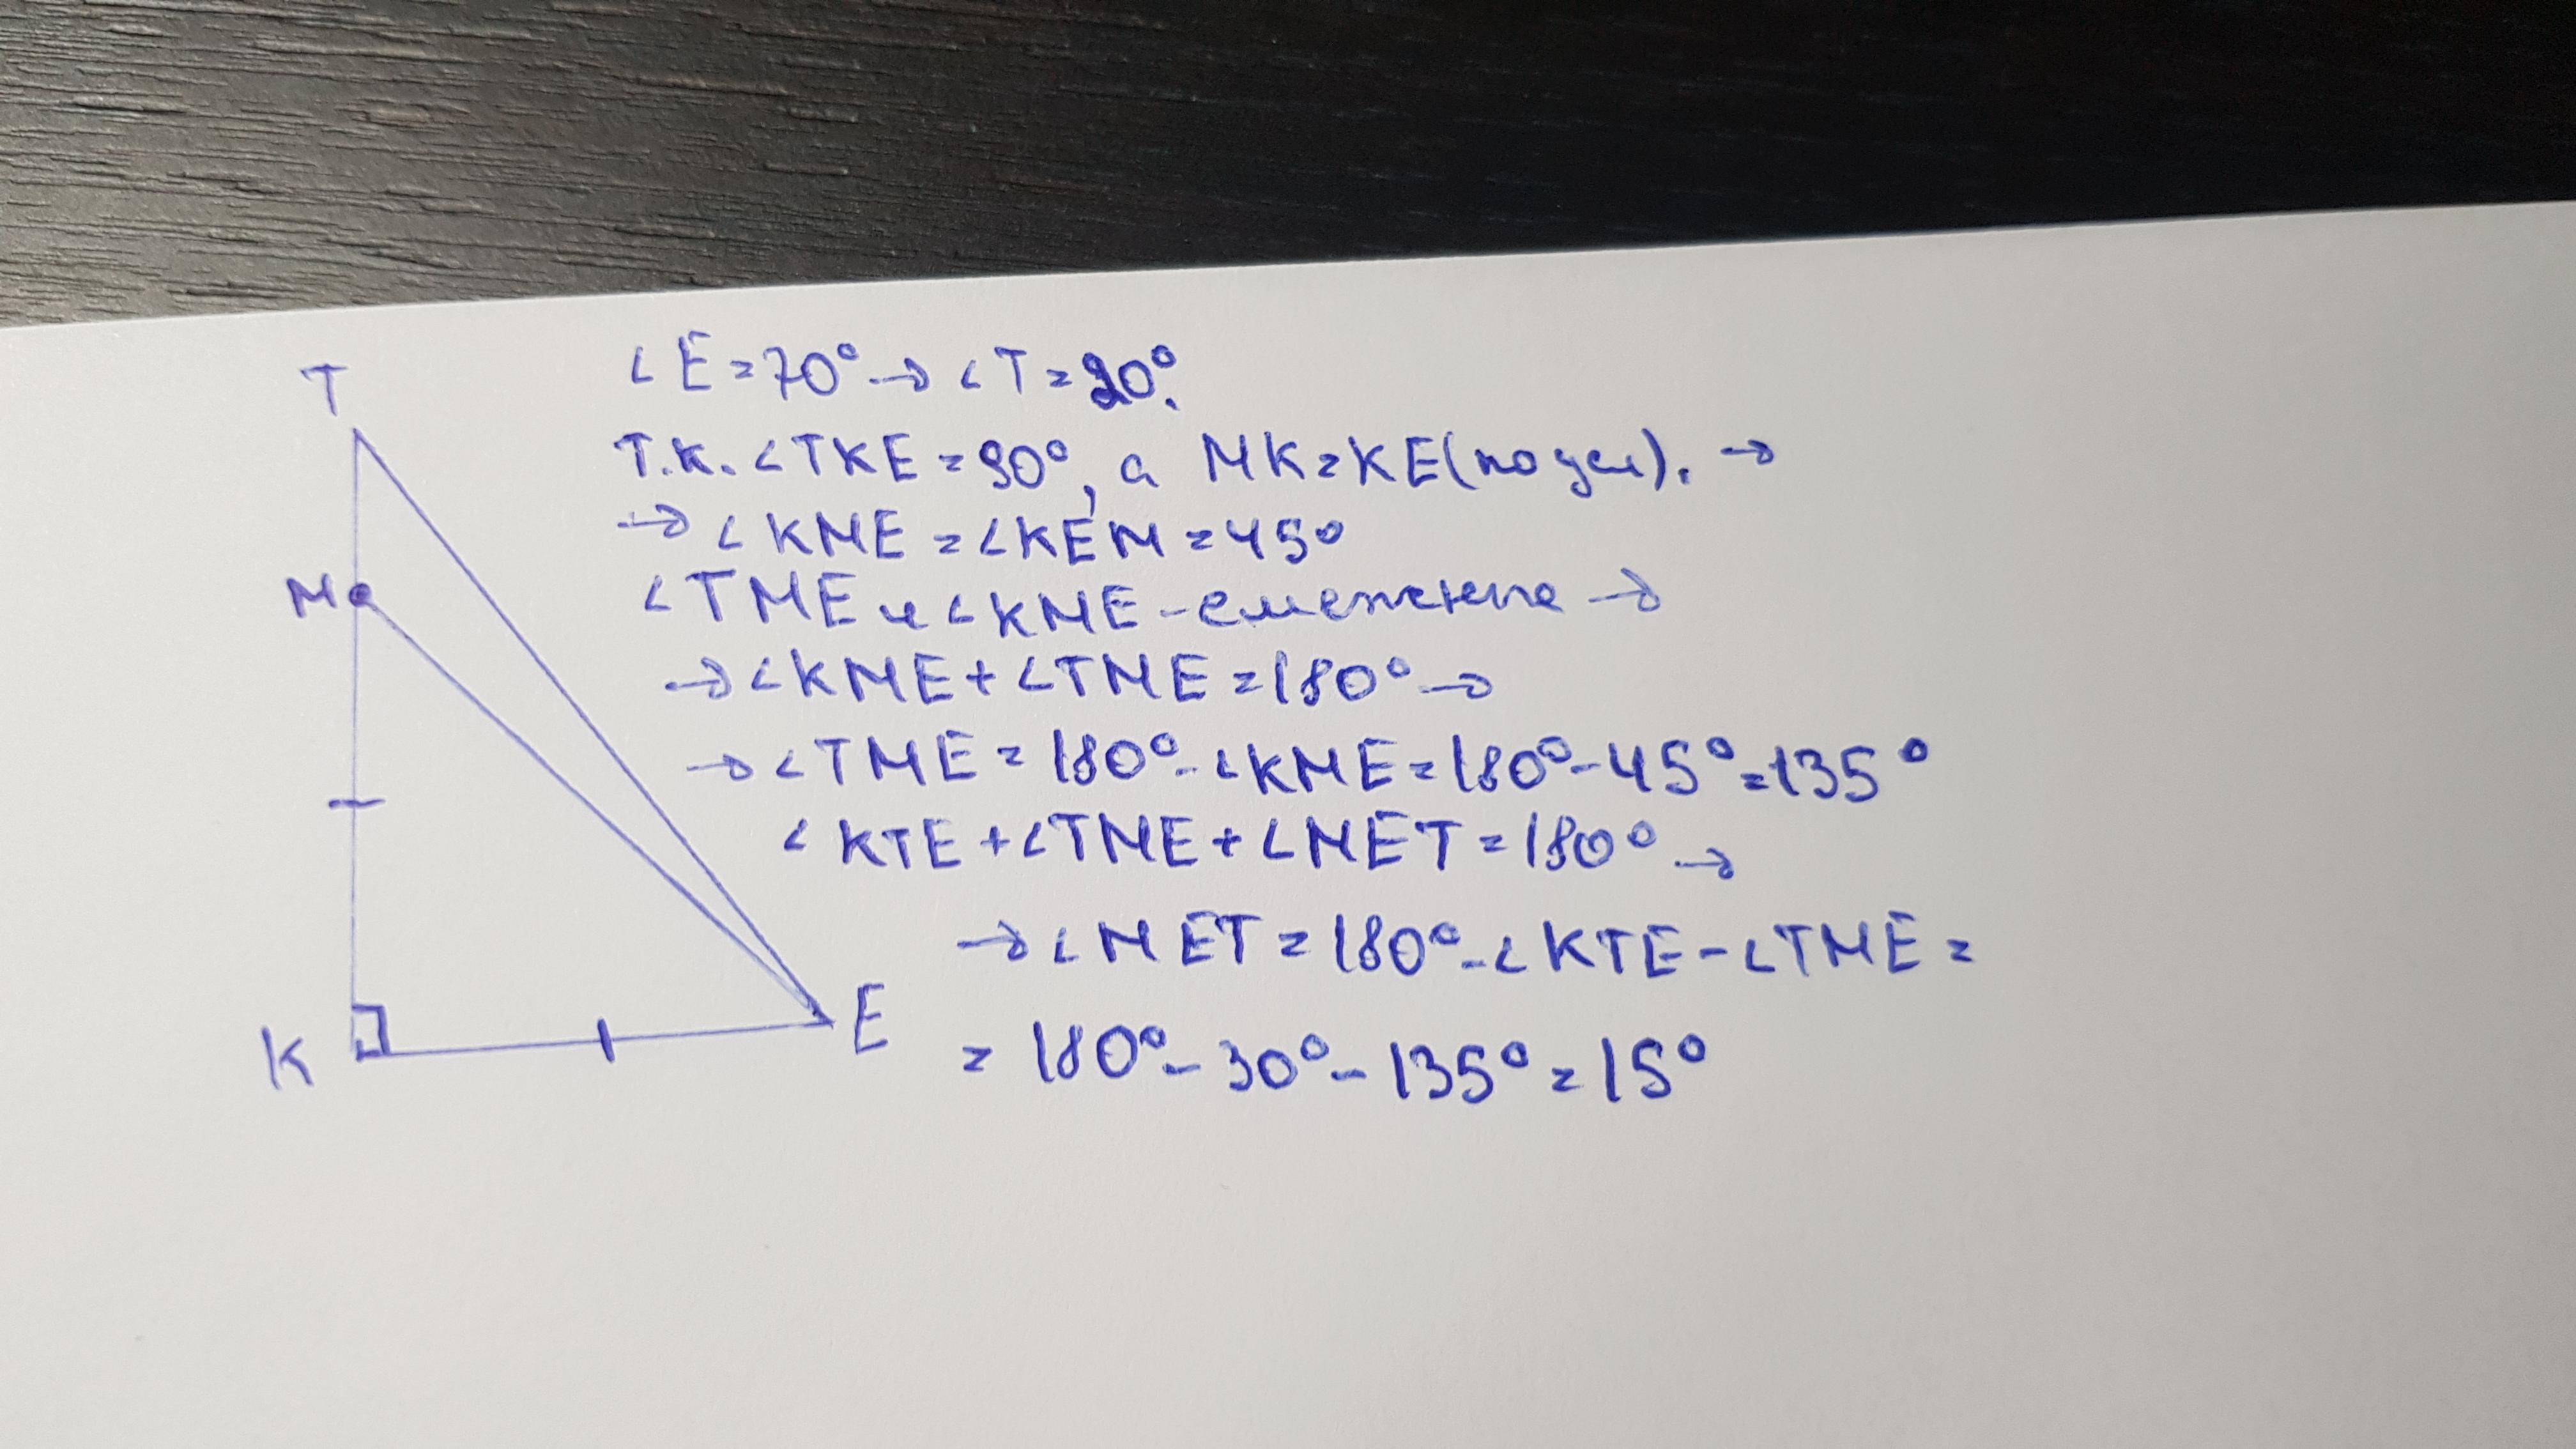 ∠E=70°→∠T=20°.
T
т.к. ∠TKE=90°, а MK=KE(по усл). →
→∠KME=∠KEM=45°
M
∠TME и ∠KME-смежные →
→∠KME+∠TME=180°→
→∠TME=180°-∠KME=180°-45°=135°
∠KTE+∠TME+∠MET=180°→
→∠MET=180°-∠KTE-∠TME=
K
E
=180°-30°-135°=15°